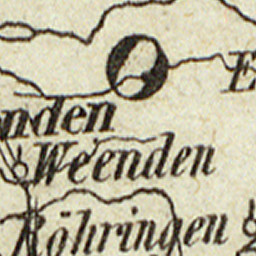 E
nden
Weenden
Röhringen